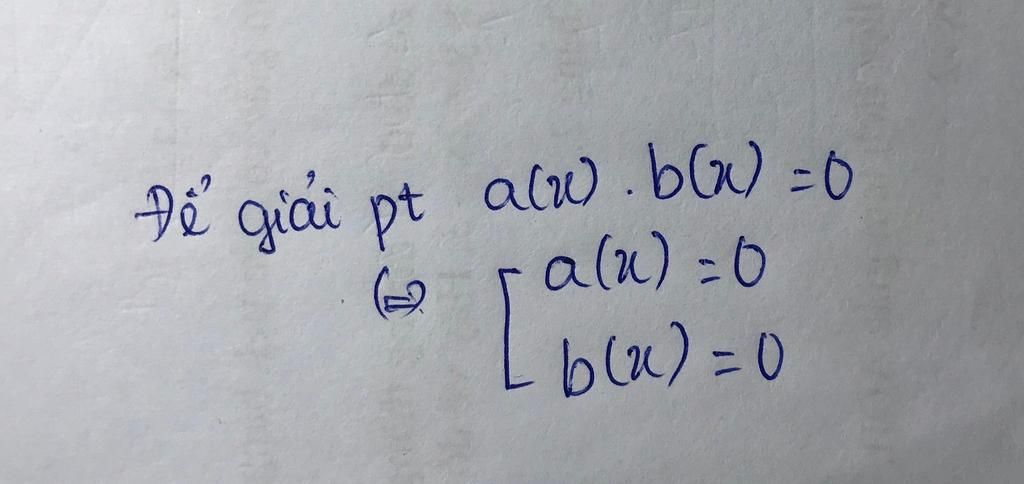 Để giải pt a(x) . b(x) = 0
(=) [ a(x) = 0
b(x) = 0